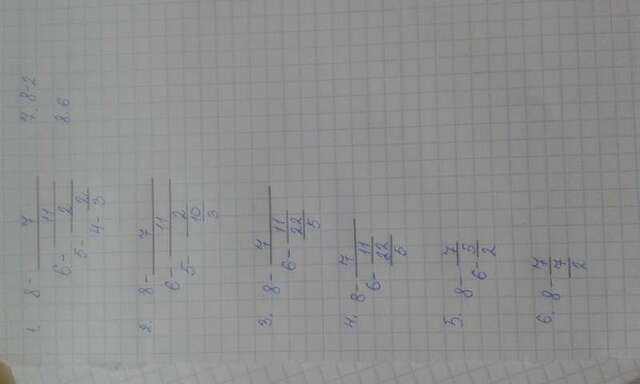 1. 8- 7 7. 8-2
6- 11 8. 6
5- 2
4- 2
3
2. 8- 7
6- 11
5- 2
10
3
3. 8- 7
6- 11
22
5
4. 8- 7
6- 11
22
5
5. 8- 7
6- 5
2
6. 8- 7
7
2